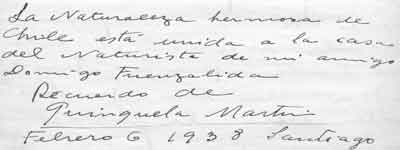 La Naturaleza hermosa de
Chile está unida a la casa
del Naturista de mi amigo
Domingo Fuenzalida
Recuerdo de
Quinquela Martín
Febrero 6 1938 Santiago